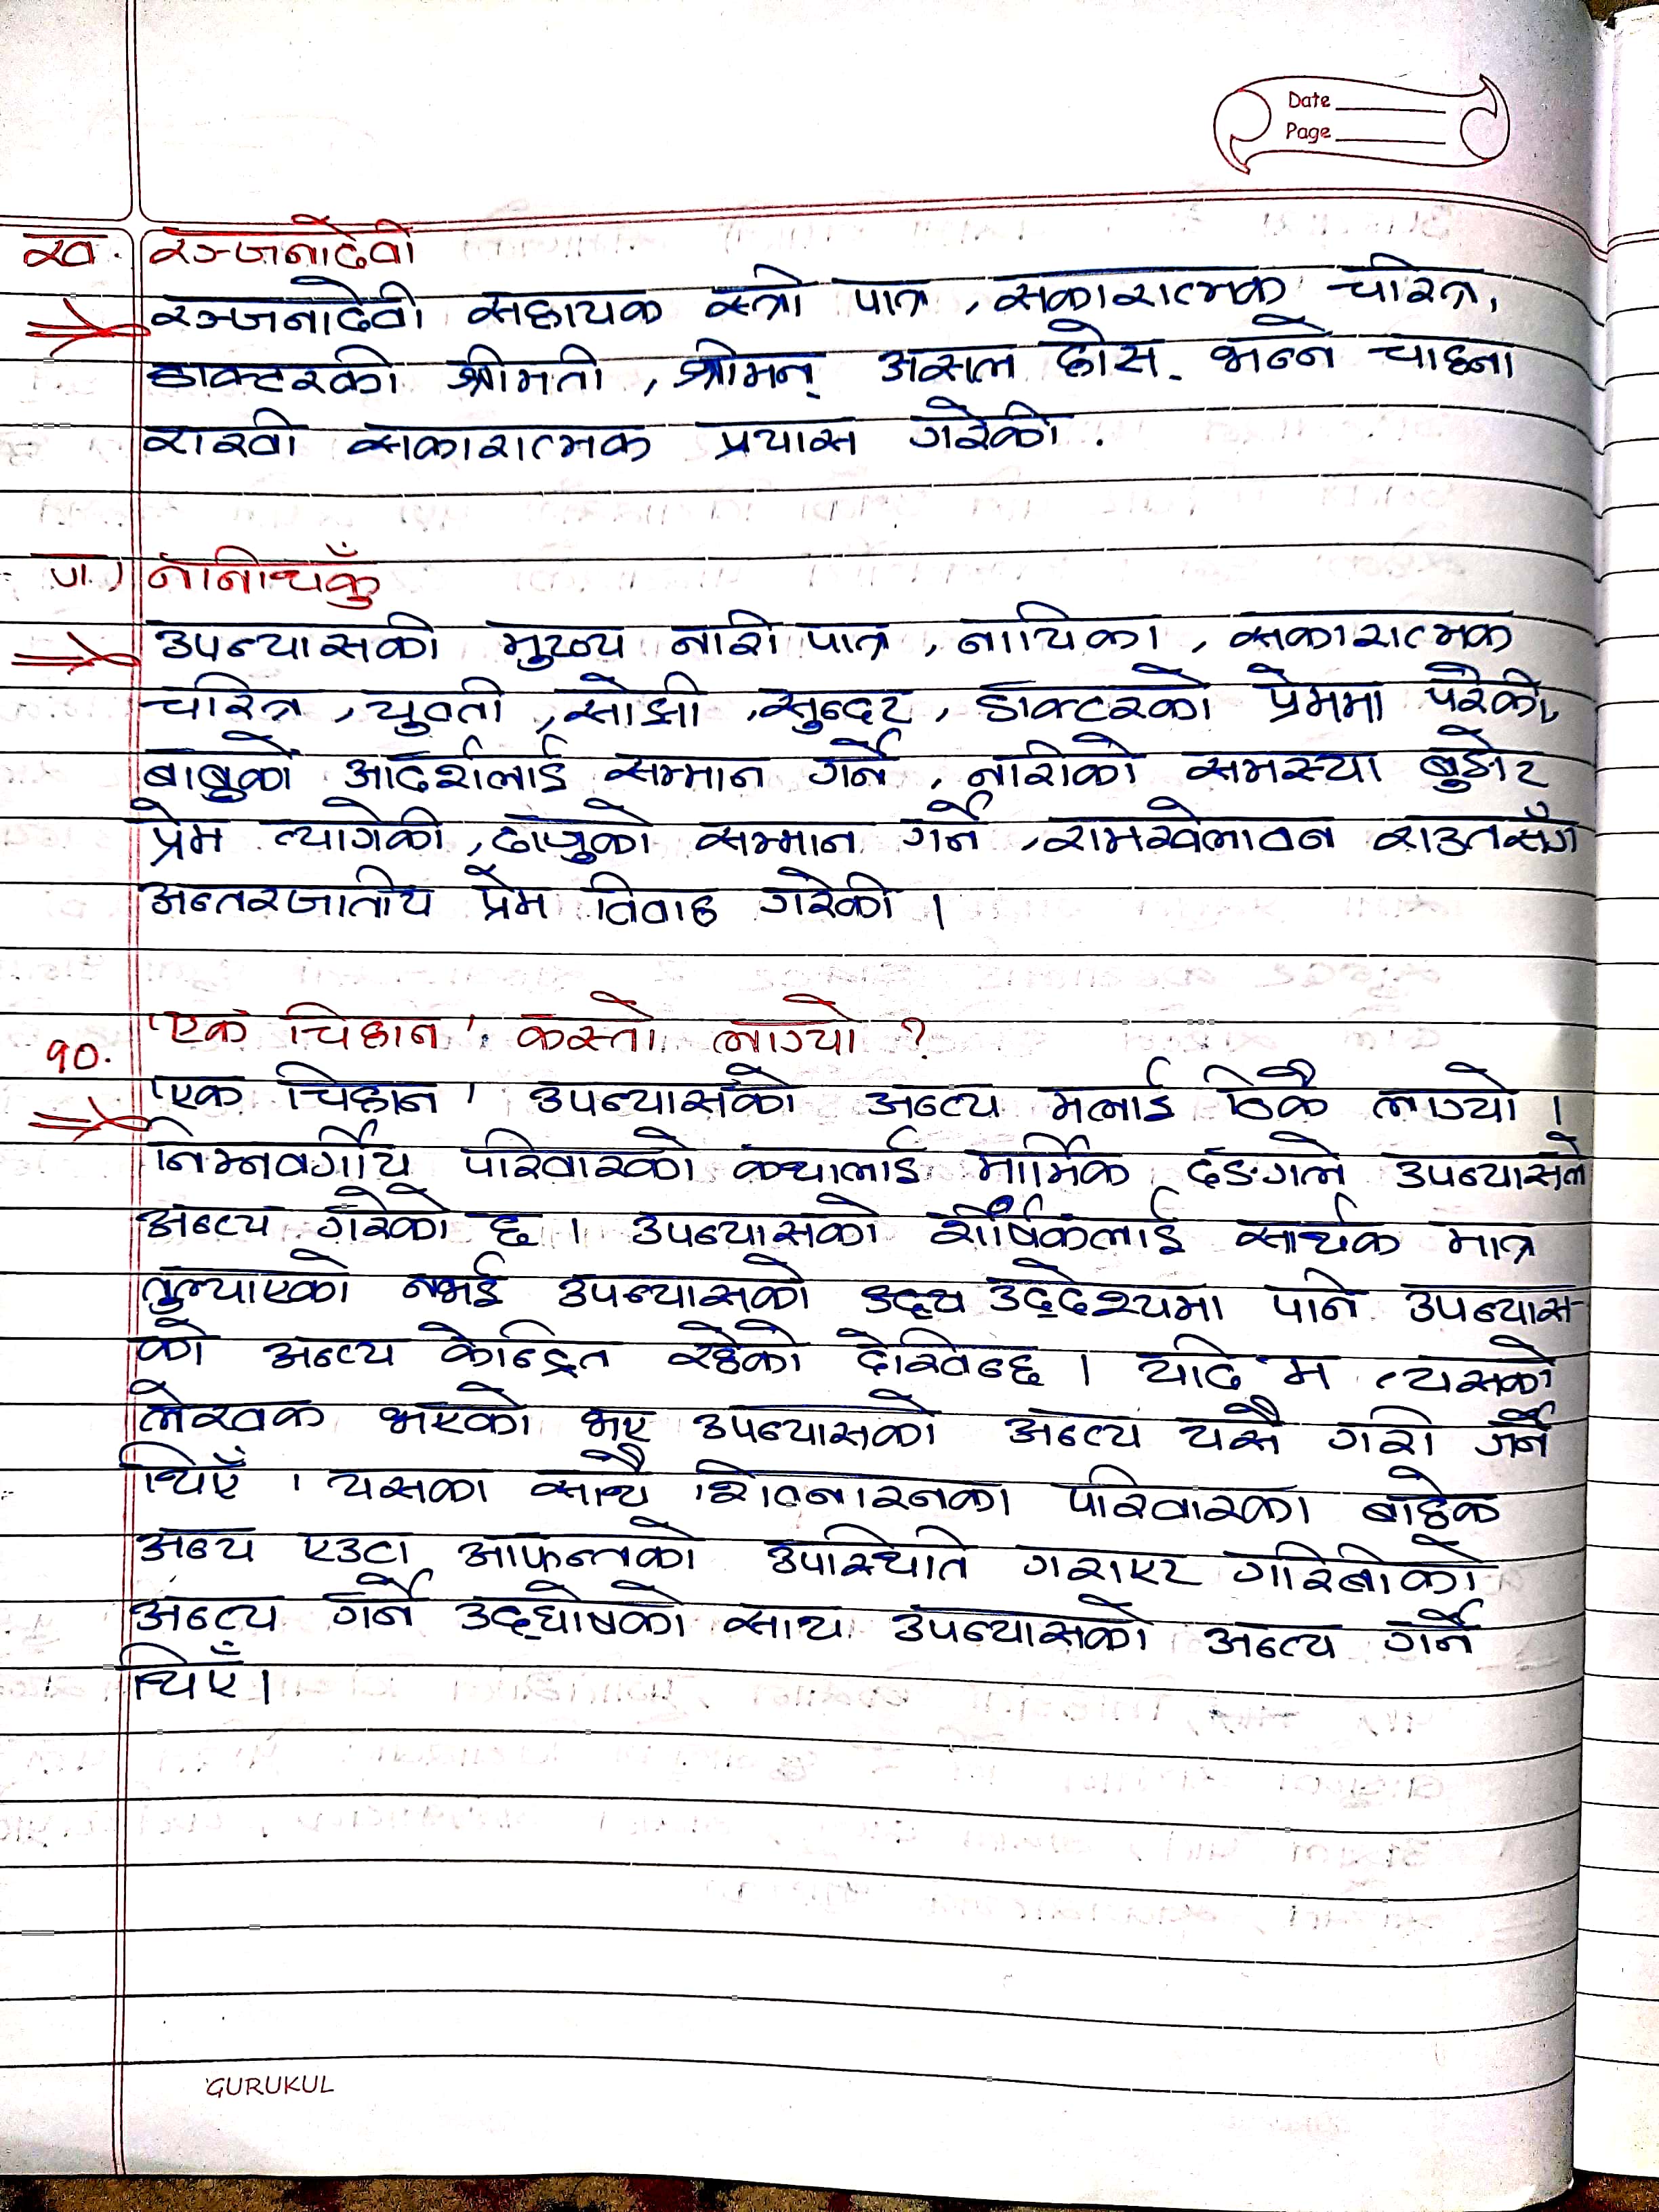 Date
Page
ख. रञ्जनादेवी
रञ्जनादेवी सहायक स्त्री पात्र, सकारात्मक चरित्र,
डाक्टरकी श्रीमती, श्रीमन् असल होस् भन्ने चाहना
राखी सकारात्मक प्रयास गरेकी.
ग.) नानीथकुँ
उपन्यासकी मुख्य नारी पात्र, नायिका, सकारात्मक
चरित्र, युवती, सोझी, सुन्दर, डाक्टरको प्रेममा परेकी,
बाबुको आदर्शलाई सम्मान गर्ने, नारीको समस्या बुझेर
प्रेम त्यागेकी, दाजुको सम्मान गर्ने, रामखेलावन राउतसँग
अन्तरजातीय प्रेम विवाह गरेकी।
१०. 'एक चिहान' कस्तो लाग्यो ?
'एक चिहान' उपन्यासको अन्त्य मलाई ठिकै लाग्यो।
निम्नवर्गीय परिवारको कथालाई मार्मिक ढङ्गले उपन्यासले
अन्त्य गरेको छ। उपन्यासको शीर्षकलाई सार्थक मात्र
तुल्याएको नभई उपन्यासको उद्देश्यमा पनि उपन्यास-
को अन्त्य केन्द्रित रहेको देखिन्छ। यदि म त्यसको
लेखक भएको भए उपन्यासको अन्त्य यसै गरी गर्ने
थिएँ। यसका साथै शिवनारनका परिवारका बाहेक
अन्य एउटा आफन्तको उपस्थिति गराएर गरिबीको
अन्त्य गर्ने उद्घोषको साथ उपन्यासको अन्त्य गर्ने
थिएँ।
GURUKUL